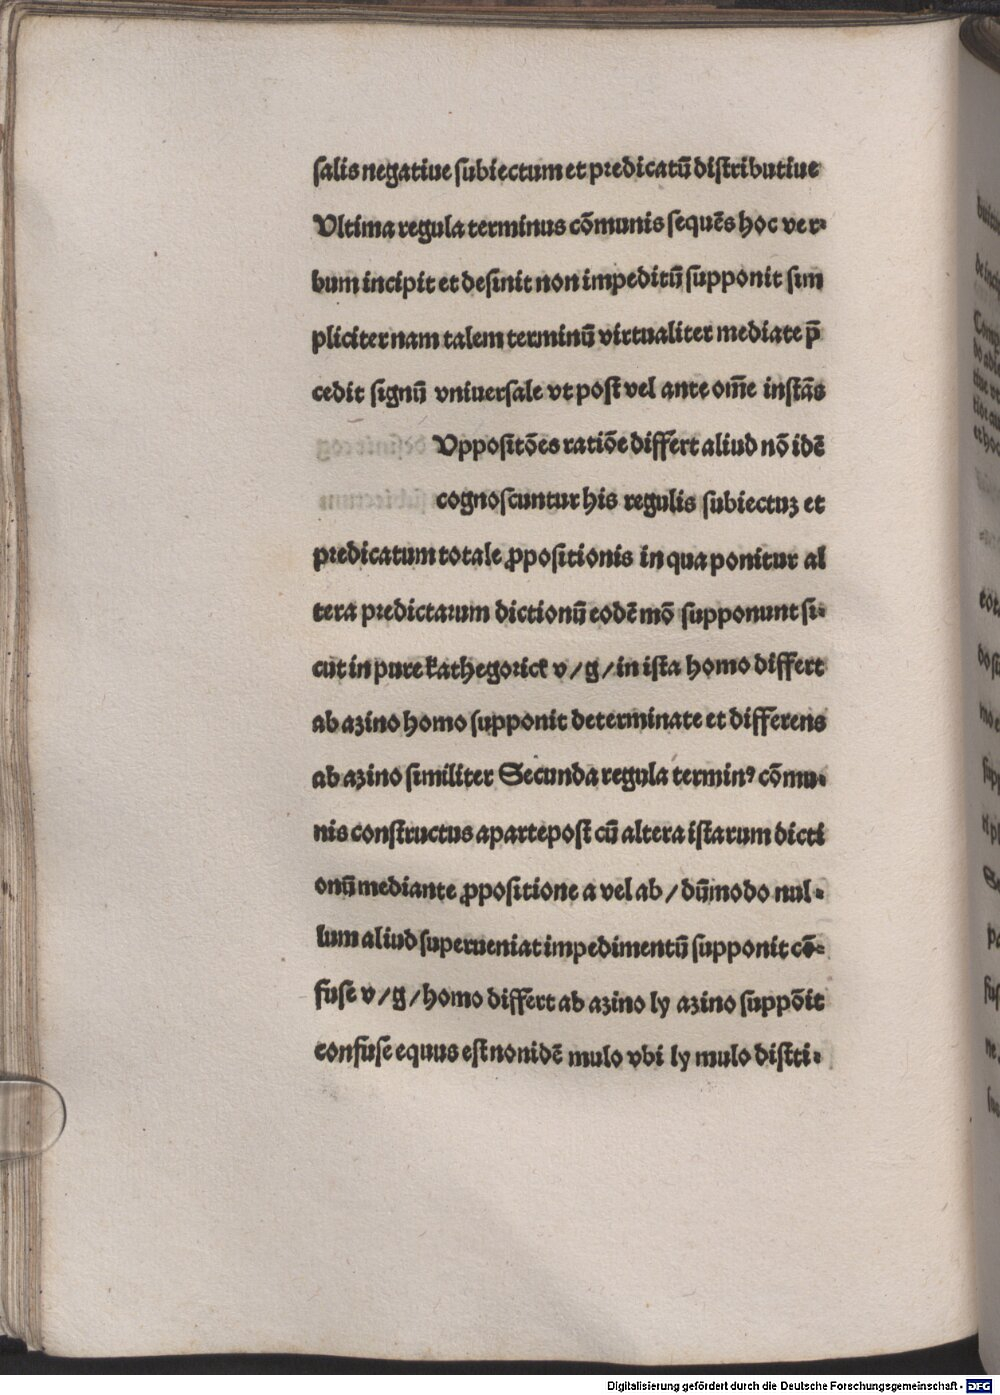 ſalis negatiue ſubiectum et predicatū diſtributiue
Vltima regula terminus cōmunis ſequēs hoc ver⸗
bum incipit et deſinit non impeditū ſupponit ſim
pliciter nam talem terminū virtualiter mediate p̄
cedit ſignū vniuerſale vt poſt vel ante om̄e inſtās
Vppoſitōes ratiōe differt aliud nō idē
cognoſcuntur his regulis ſubiectuꝫ et
predicatum totale ꝓpoſitionis in qua ponitur al
tera predictarum dictionū eodē mō ſupponunt ſi⸗
cut in pure kathegorick v/g/in iſta homo differt
ab azino homo ſupponit determinate et differens
ab azino ſimiliter Secunda regula terminꝰ cōmu⸗
nis conſtructus a parte poſt cū altera iſtarum dicti
onū mediante ꝓpoſitione a vel ab/dūmodo nul⸗
lum aliud ſuperueniat impedimentū ſupponit cō⸗
fuſe v/g/homo differt ab azino ly azino ſuppōit
confuſe equus eſt non idē mulo vbi ly mulo diſtti⸗
Digitalisierung gefördert durch die Deutsche Forschungsgemeinschaft - DFG